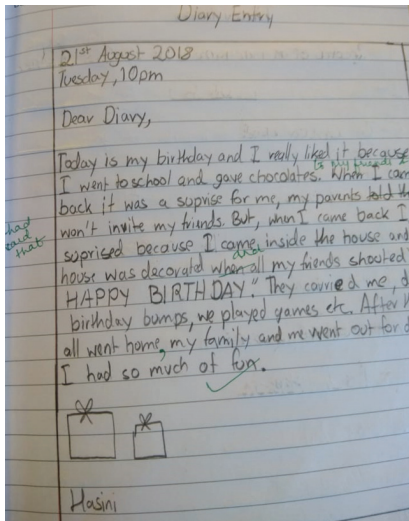 Diary Entry
21st August 2018
Tuesday, 10pm
Dear Diary,
Today is my birthday and I really liked it because
to my friends
I went to school and gave chocolates. When I cam
back it was a suprise for me, my parents told th
had said that
won't invite my friends. But, when I came back I
suprised because I came inside the house and
and
house was dacoratd when all my friends shouted
HAPPY BIRTHDAY." They carried me, d
birthday bumps, we played games etc. After
all went home, my family and me went out for d
I had so much of fun.
Hasini